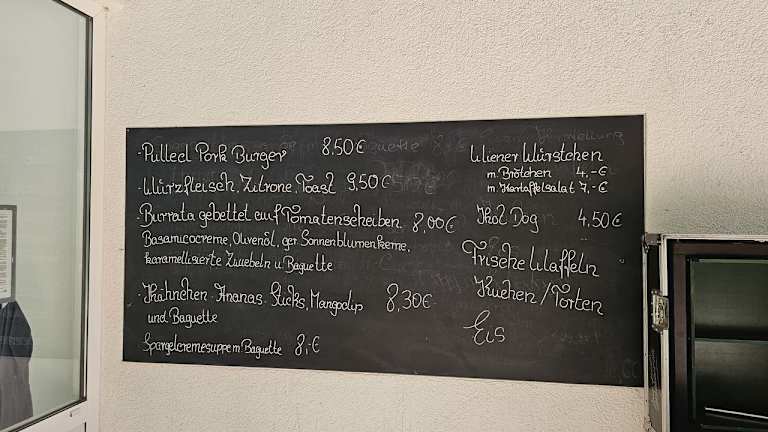 - Pulled Pork Burger 8.50€
- Würzfleisch, Zitrone, Toast 9,50€
- Burrata gebettet auf Tomatenscheiben 8,00€
Basamicocreme, Olivenöl, ger. Sonnenblumenkerne,
karamellisierte Zwiebeln u. Baguette
- Hähnchen-Ananas-Sticks, Mangodip 8,30€
und Baguette
Spargelcremesuppe m. Baguette 8,-€
Wiener Würstchen
m. Brötchen 4,-€
m. Kartoffelsalat 7,-€
Hot Dog 4,50€
Frische Waffeln
Kuchen/Torten
Eis